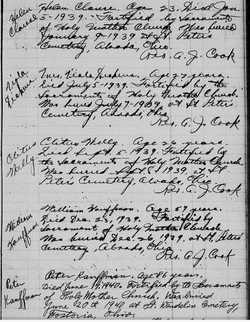 Helen Clouse. Age 23. Died Jan.
5 - 1939. Fortified by sacraments
of Holy Mother Church. Was buried
January 9 - 1939 at St. Peter's
Cemetery, Alvada, Ohio.
Rev. A. J. Cook
Mrs. Viola Age 29 years.
Died July 5 - 1939. Fortified by the
sacraments of Holy Mother Church.
Was buried July 7 - 1939 at St. Peter's
Cemetery, Alvada, Ohio.
Rev. A. J. Cook
Cletus Nelly
Cletus Nelly Age 26 years.
Died 5 - 1939. Fortified by
the Sacraments of Holy Mother Church.
Was buried 8 1939 at St.
Peter's Cemetery, Alvada, Ohio.
Rev. A. J. Cook
William Kauffman
William Kauffman. Age 59 years.
Died Dec. 23, 1939. Fortified by
Sacraments of Holy Mother Church
Was buried Dec. 26, 1939, at St. Peter's
Cemetery, Alvada, Ohio.
Rev. A. J. Cook
Peter Kauffman
Peter Kauffman. Age 86 years.
Died June 1940. Fortified by the Sacraments
of Holy Mother Church, Was buried
June 20th 1940 at St. Wendelin Cemetery
Fostoria, Ohio.